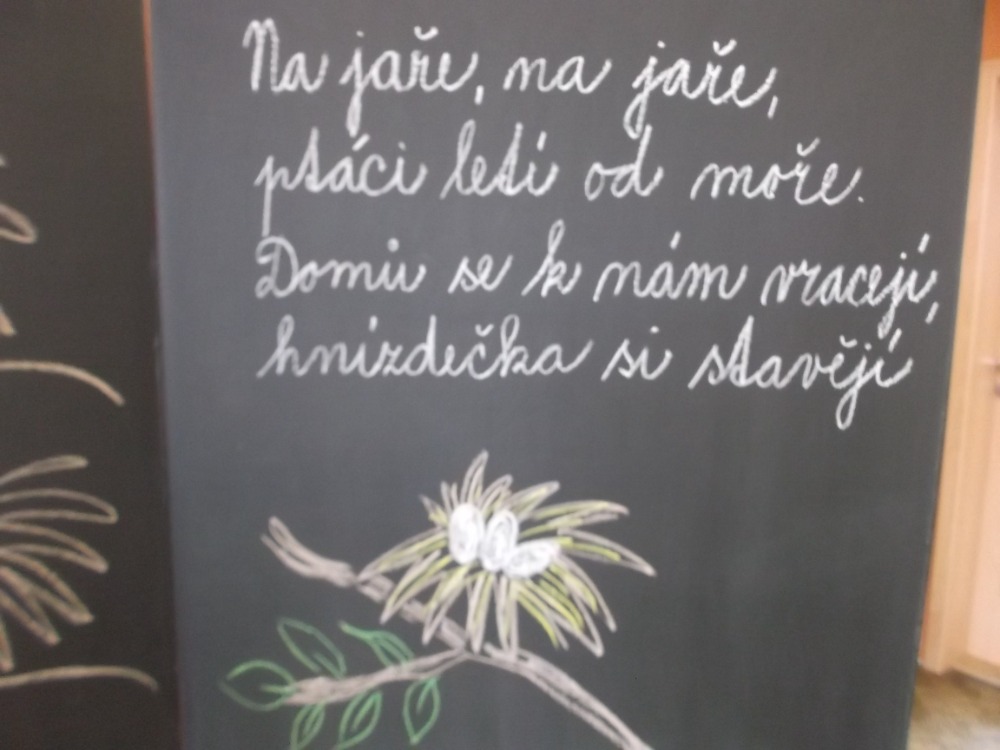 Na jaře, na jaře,
ptáci letí od moře.
Domů se k nám vracejí,
hnízdečka si stavějí